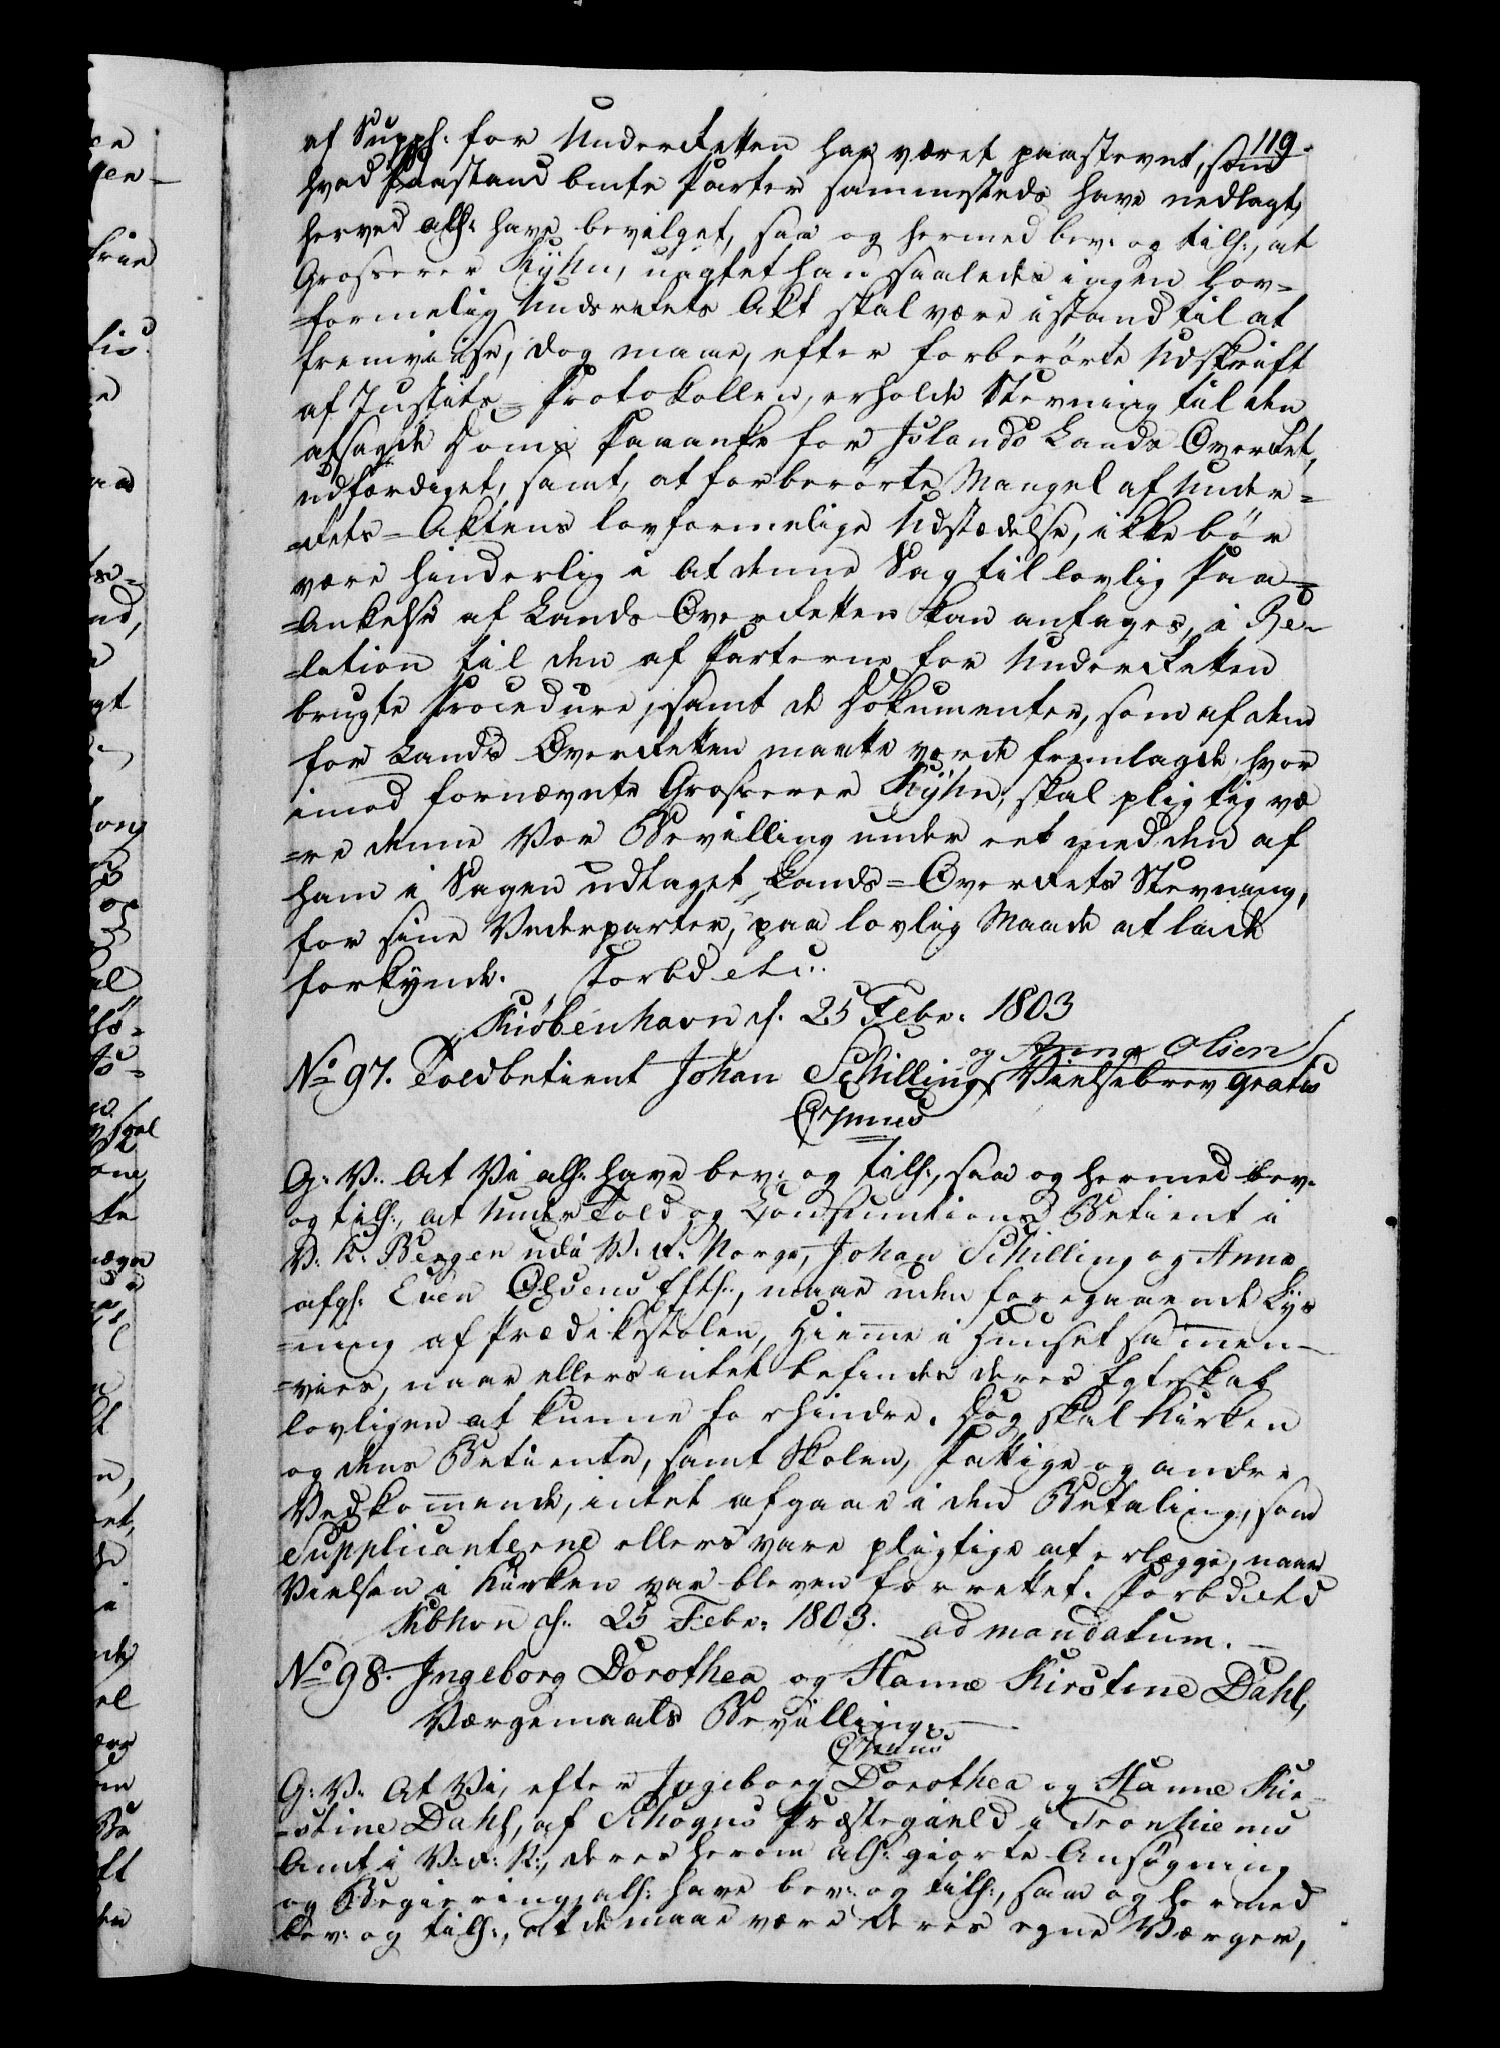 119.
af Suppl: for Underretten har været paastevnt, som
hvad Paastand bmte Parter sammesteds have nedlagt,
herved allr: have bevilget, saa og hermed bev: og till:, at
Grosserer Kÿhn, uagtet han saaledes ingen Lov-
=formelig Underrets Akt skal være istand til at
fremviise, dog maae, efter forberørte Udskrift
af Justits=Protokollen, erholde Stevning til den
afsagde Doms Paaanke for Jislands Lands Overret,
udfærdiget, samt, at forberørte Mangel af Under=
=rets=Aktens lovformelige Udstædelse, ikke bør
være hinderlig i at denne Sag til lovlig Paa=
=Ankelse af Lands Overretten kan antages, i Re-
=lation til den af Parterne for Underretten
brugte Procedure, samt de Dokumenter, som af dem
for Lands Overretten maatte vorde fremlagde, hvor
imod fornævnte Grosserer Kÿhn, skal pligtig væ
=re denne Vor Bevilling under eet med den af
ham i Sagen udtaget Lands=Overrets Stevning,
for sine Vederparter, paa lovlig Maade at lade
forkynde. Forbd etc:
Kiøbenhavn d. 25 Febr: 1803
og Anna Olsen
No 97. Toldbetient Johan Schillings Vielsebrev gratis
G: V: At Vi allr: have bev: og till:, saa og hermed bev:
og till:, at Under Told og Consumtions Betient i
V: K: Bergen udi V: R: Norge, Johan Schilling og Anna
afgl: Even Olsens Eftl:, maae uden foregaaende Lys
=ning af Prædikestolen, Hieme i Huuset samen-
=vies, naar ellers intet befindes deres Egteskab
lovligen at kunne forhindre. Dog skal Kirken
og dens Betiente, samt Skolen, Fattige og andre
Vedkommende, intet afgaae i den Betaling, som
Supplicanterne ellers vare pligtige at erlægge, naar
Vielsen i Kirken var bleven forrettet. Forbd etc
Kbhvn d: 25 Febr: 1803. ad mandatum.
No 98. Ingeborg Dorothea og Hanne Kirstine Dahl,
Værgemaals Bevilling.
G: V: At Vi, efter Ingeborg Dorothea og Hanne Kir-
-stine Dahl, af Schogns Præstegield i Tronhiems
Amt i V: R: N:, deres herom allr: giorte Ansøgning
og Begiering, allr: have bev: og till:, saa og hermed
bev: og till:, at de maae være deres egne Værger,